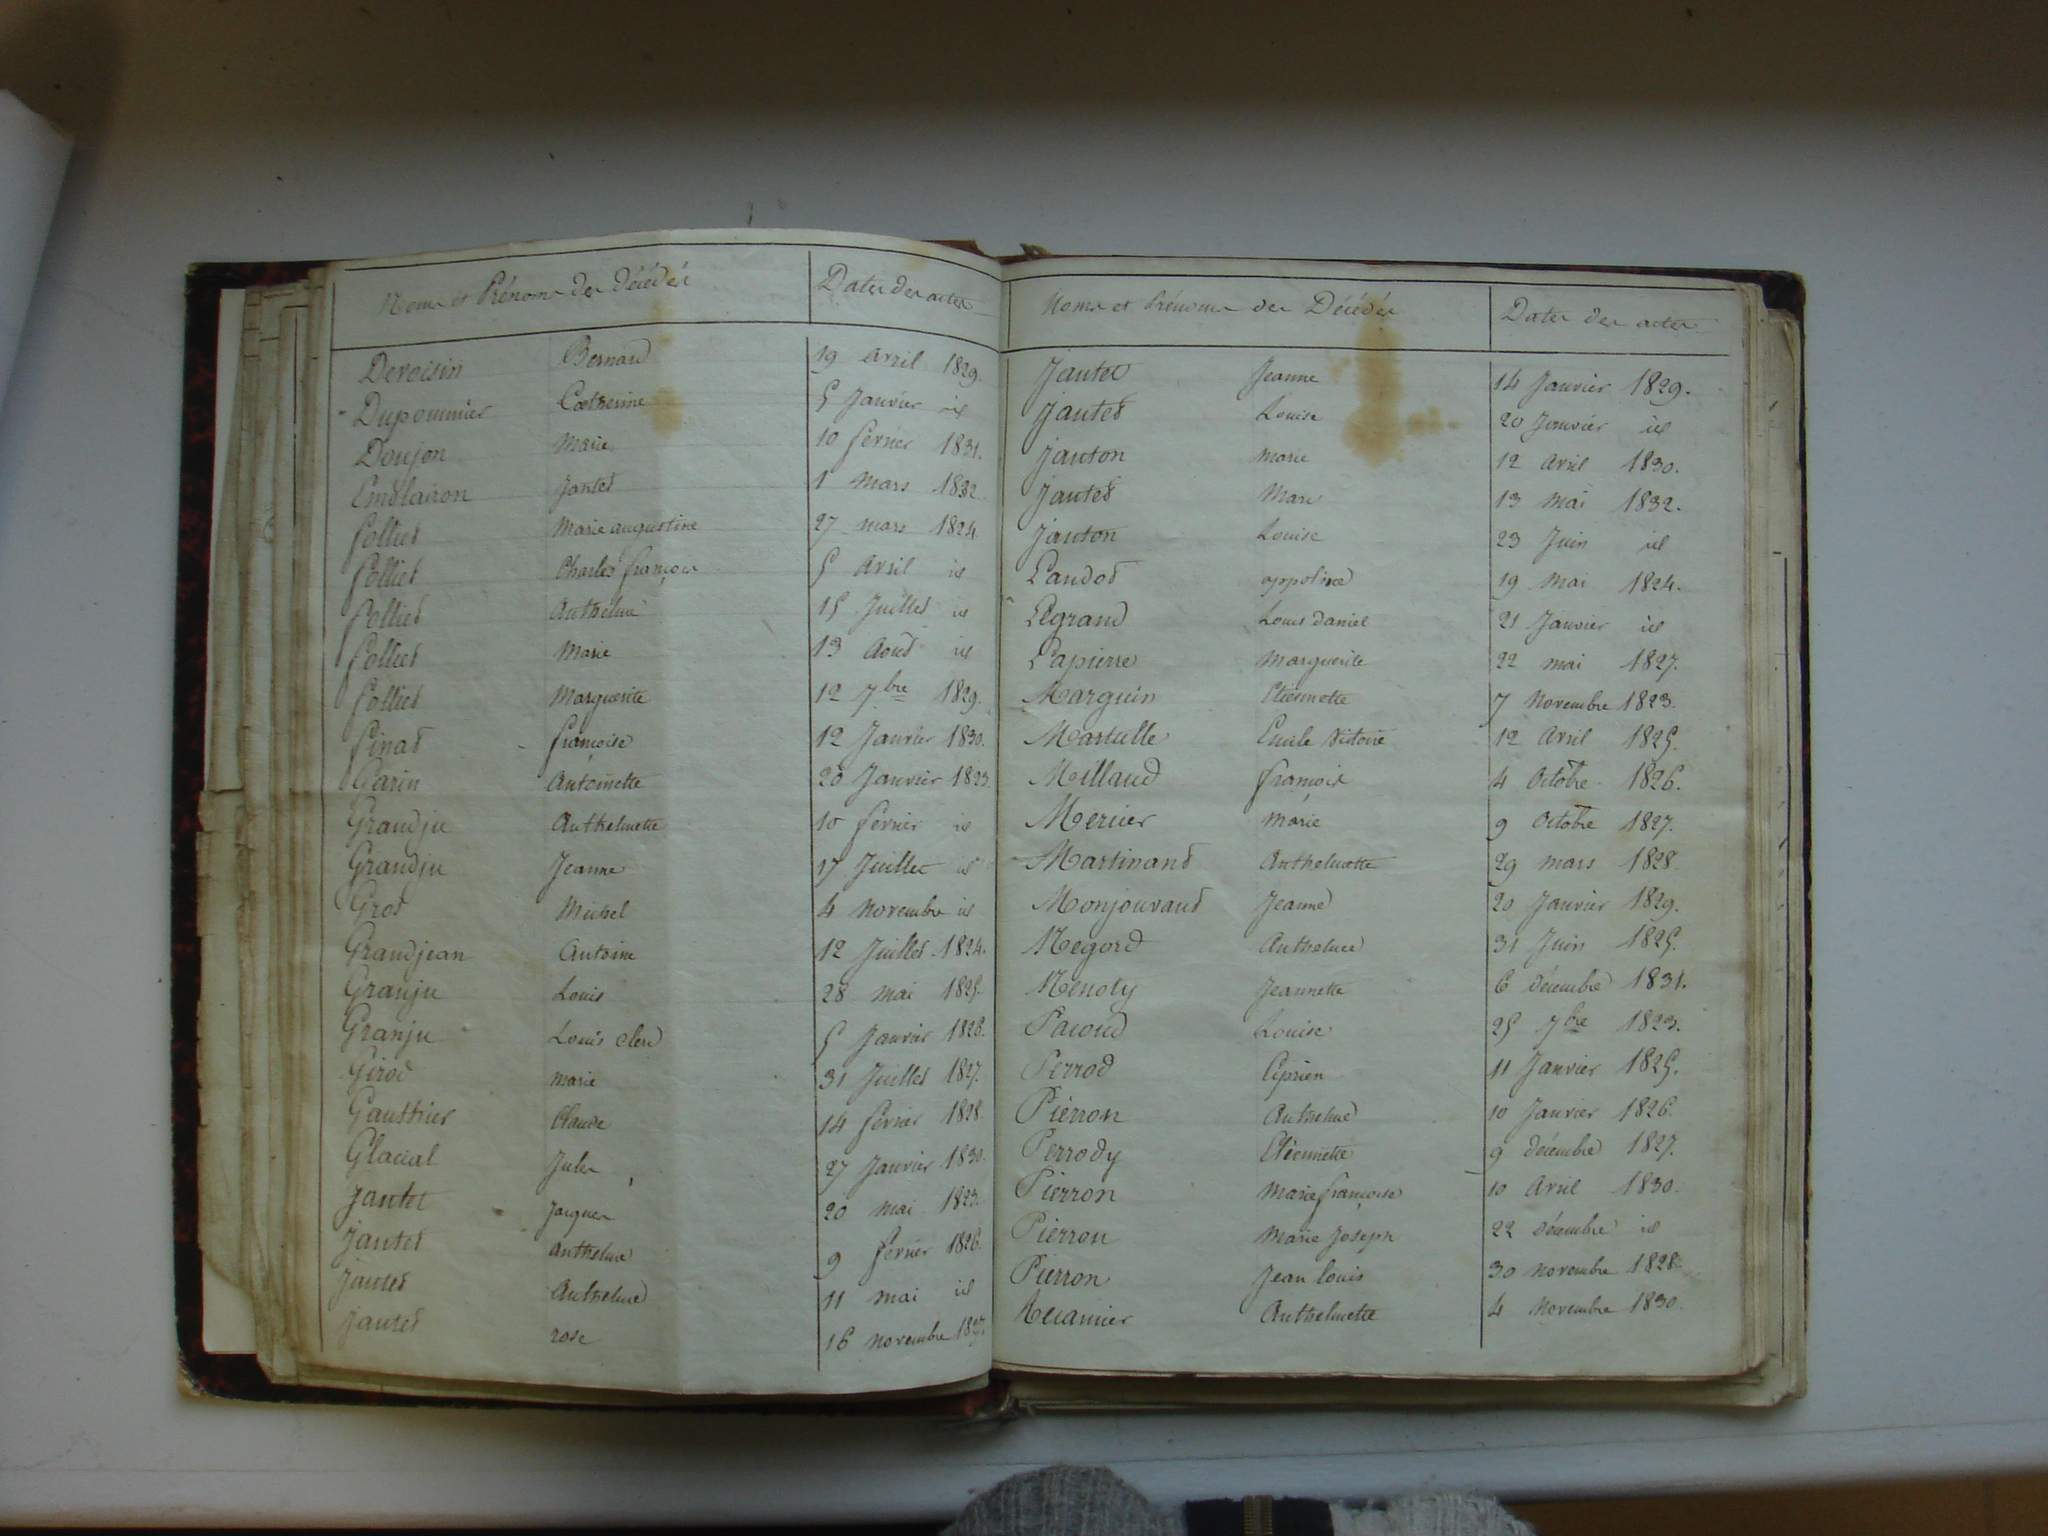 Noms et Prénoms des Décédés Dates des actes
Devoisin Bernard 19 avril 1829.
Dupommier Catherine 5 Janvier id
Doujon Marie 10 fevrier 1831.
Emblairon Jantet 1 Mars 1832
folliet Marie augustine 27 mars 1824
folliet Charles françois 5 Avril id
folliet Anthelme 15 Juillet id
folliet Marie 13 Aout id
folliet Marguerite 12 7bre 1829.
finat françoise 12 Janvier 1830.
Garin Antoinette 20 Janvier 1823
Grandju Anthelmette 10 fevrier id
Grandju Jeanne 17 Juillet id
Grot Michel 4 Novembre id
Grandjean Antoine 12 Juillet 1824.
Granju Louis 28 mai 1825.
Granju Louis 5 Janvier 1826.
Girod marie 31 Juillet 1827.
Gauthier Claude 14 fevrier 1828.
Glacial Jules 27 Janvier 1830.
Jantet Jacques 20 mai 1823.
Jantet anthelme 9 fevrier 1826.
Jantet Anthelme 11 mai id
Jantet rose 16 novembre 1827.
Noms et Prénoms des Décédés Dates des actes
Jantet Jeanne 14 Janvier 1829.
Jantet Louise 20 Janvier id
Janton marie 12 Avril 1830.
Jantet Marie 13 mai 1832.
Janton Louise 23 Juin id
Landot appoline 19 Mai 1824.
Legrand Louis Daniel 21 Janvier id
Lapierre Marguerite 22 mai 1827.
Marguin Etiennette 7 Novembre 1823.
Martelle Emile Victoire 12 Avril 1825.
Millaud françois 4 Octobre 1826.
Mercier Marie 9 Octobre 1827.
Martinand Anthelmette 29 mars 1828
Monjouvand Jeanne 20 Janvier 1829.
Megord Anthelme 31 Juin 1825.
Jeannette 6 décembre 1831.
Pacoud Louise 25 7bre 1823.
Perrod Ciprien 11 Janvier 1825.
Pierron Anthelme 10 Janvier 1826.
Perrody Etiennette 9 décembre 1827.
Pierron Marie françoise 10 Avril 1830.
Pierron Marie Joseph 22 décembre id
Pierron Jean louis 30 novembre 1828
Anthelmette 4 Novembre 1830.